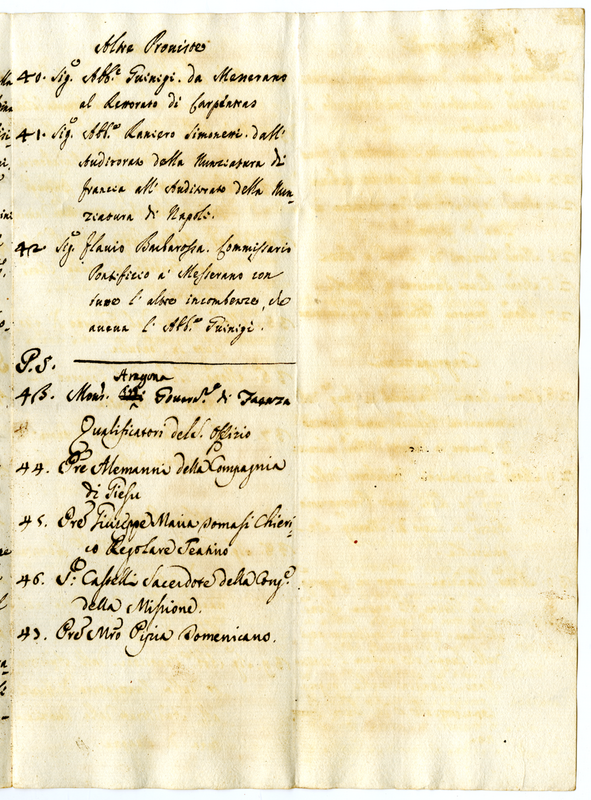 Altre Proviste
40. Sigr. Abb.e Guinigi. da Messerano
al Rettorato di Carpentras
41. Sigr. Abb.e Raniero Simonetti. dall'
Auditorato della Nunziatura di
francia all' Auditorato della Nun-
ziatura di Napoli.
42 Sigr. flavio Barbarossa. Commissario
Pontificio a' Messerano con
tutte l' altre incombenze, che
aveva l' Abb.e Guinigi.
P.S.
Aragona
43. Mons. Govern.re di Faenza
Qualificatori del S. Offizio
44. Pre Alemanni della Compagnia
di Giesu
45. Pre Giuseppe Maria Tomasi Chieri-
co Regolare Teatino
46. P: Castelli Sacerdote della Cong.e
della Missione.
43. Pre Mro Pipia Domenicano.